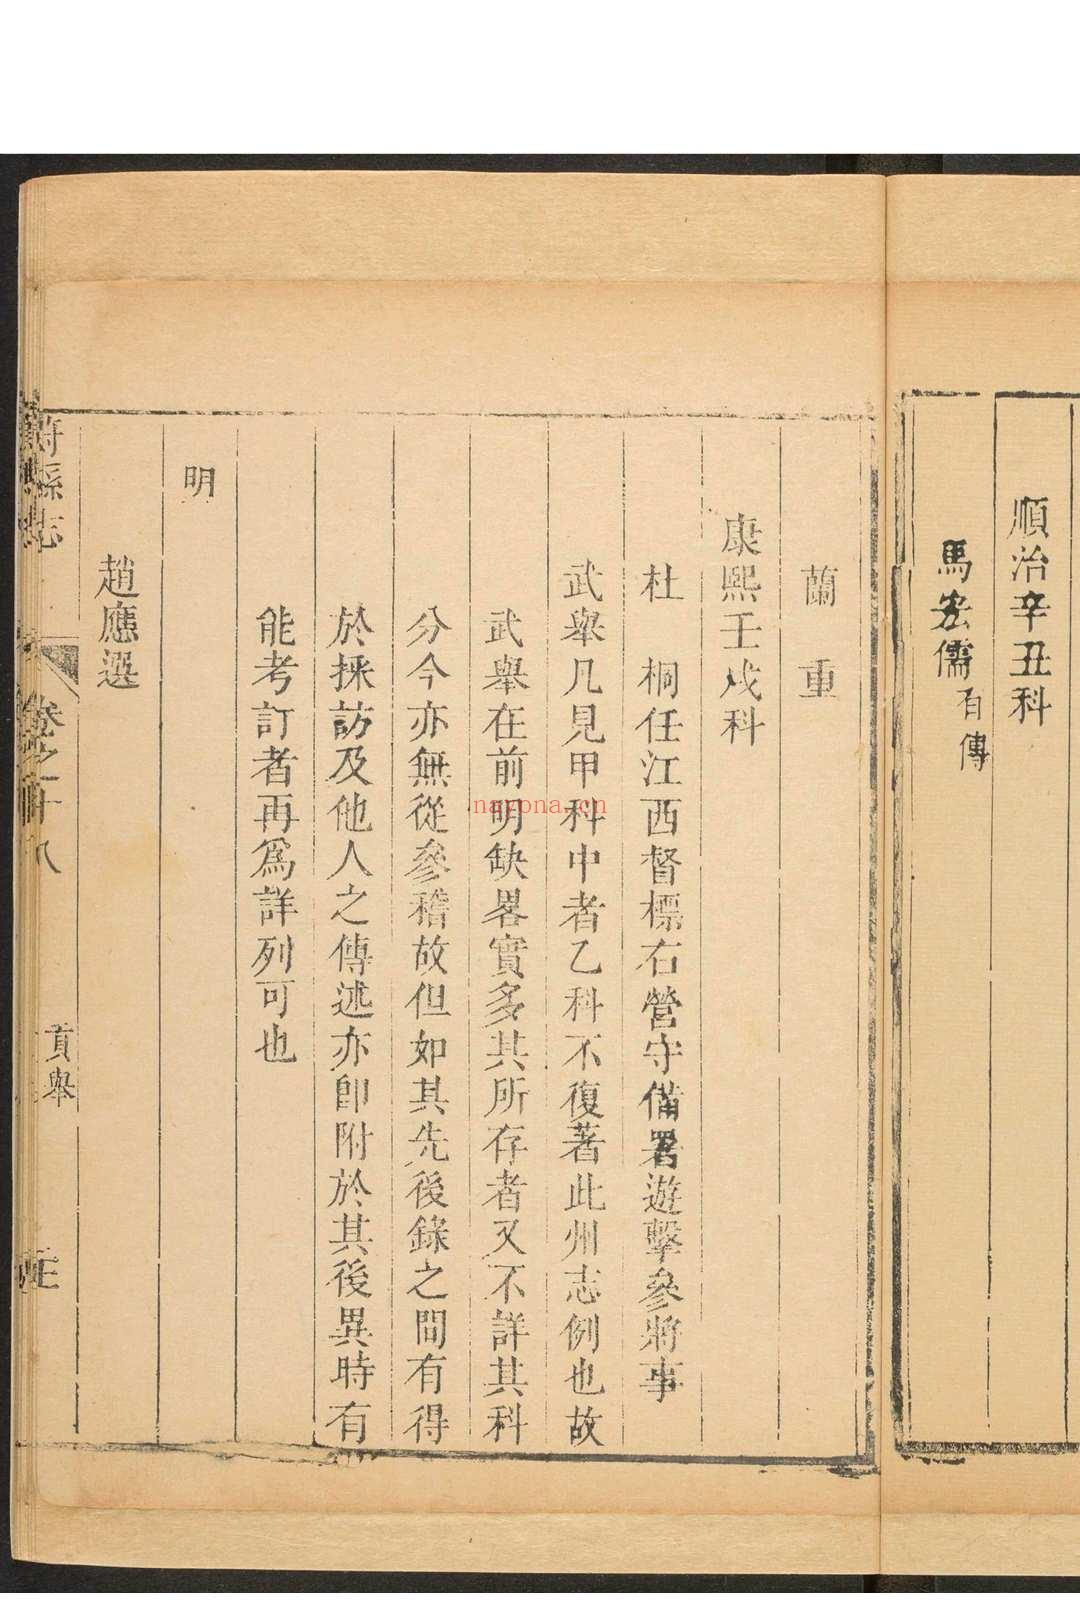 順治辛丑科
馬宏儒有傳
蘭重
康熙壬戌科
杜桐任江西督標右營守備署遊擊參將事
武舉凡見甲科中者乙科不復著此州志例也故
武舉在前明缺畧實多其所存者又不詳其科
分今亦無從參稽故但如其先後錄之間有得
於採訪及他人之傳述亦卽附於其後異時有
能考訂者再爲詳列可也
明
趙應選
縣志
卷之十八
貢舉
nayona.cn